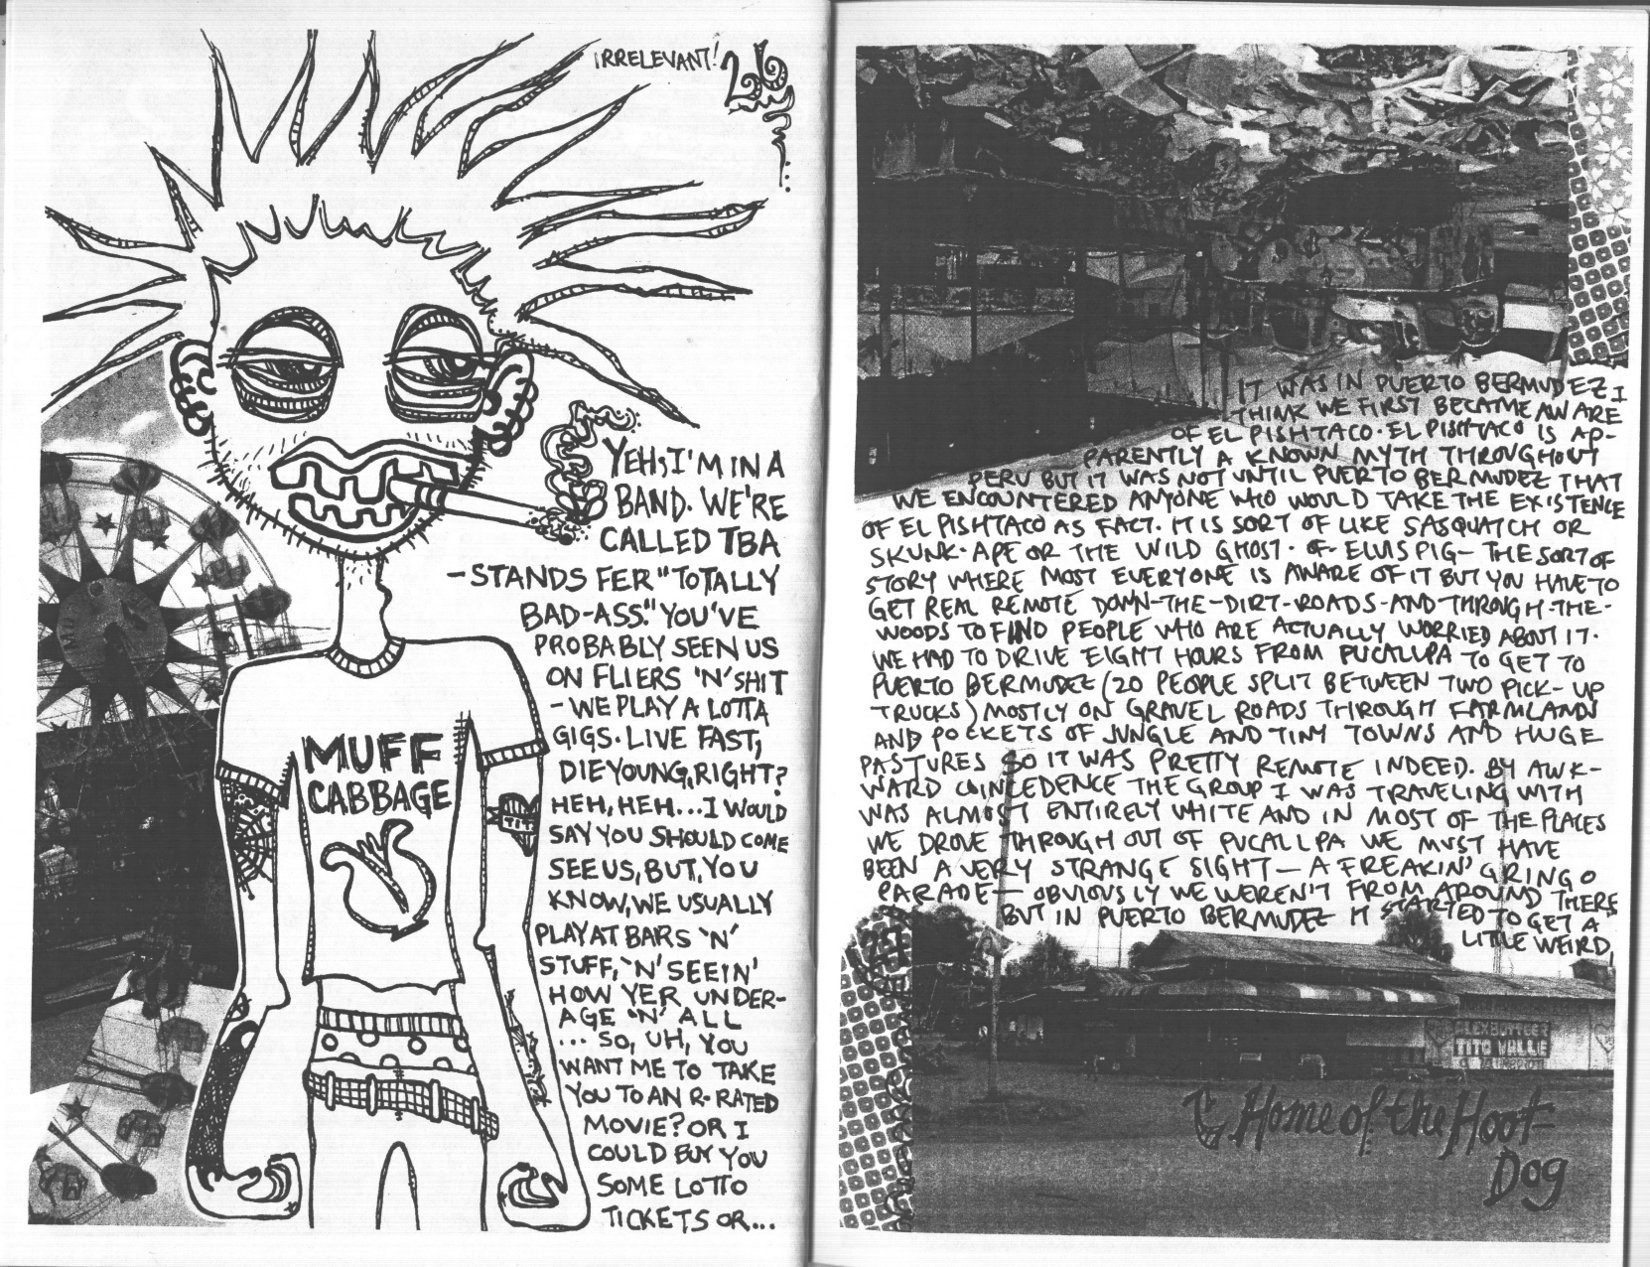 IRRELEVANT! 26
YEH, I'M IN A
BAND. WE'RE
CALLED TBA
-STANDS FER "TOTALLY
BAD-ASS." YOU'VE
PROBABLY SEEN US
ON FLIERS 'N' SHIT
- WE PLAY A LOTTA
GIGS. LIVE FAST,
DIE YOUNG, RIGHT?
HEH, HEH...I WOULD
SAY YOU SHOULD COME
SEE US, BUT, YOU
KNOW, WE USUALLY
PLAY AT BARS 'N'
STUFF, 'N' SEEIN'
HOW YER UNDER-
AGE 'N' ALL
... SO, UH, YOU
WANT ME TO TAKE
YOU TO AN R-RATED
MOVIE? OR I
COULD BUY YOU
SOME LOTTO
TICKETS OR...
MUFF
CABBAGE
TIT
IT WAS IN PUERTO BERMUDEZ I
THINK WE FIRST BECAME AWARE
OF EL PISHTACO. EL PISHTACO IS AP-
PARENTLY A KNOWN MYTH THROUGHOUT
PERU BUT IT WAS NOT UNTIL PUERTO BERMUDEZ THAT
WE ENCOUNTERED ANYONE WHO WOULD TAKE THE EXISTENCE
OF EL PISHTACO AS FACT. IT IS SORT OF LIKE SASQUATCH OR
SKUNK-APE OR THE WILD GHOST-OF-ELVIS PIG- THE SORT OF
STORY WHERE MOST EVERYONE IS AWARE OF IT BUT YOU HAVE TO
GET REAL REMOTE DOWN-THE-DIRT-ROADS-AND-THROUGH-THE-
WOODS TO FIND PEOPLE WHO ARE ACTUALLY WORRIED ABOUT IT.
WE HAD TO DRIVE EIGHT HOURS FROM PUCALLPA TO GET TO
PUERTO BERMUDEZ (20 PEOPLE SPLIT BETWEEN TWO PICK-UP
TRUCKS) MOSTLY ON GRAVEL ROADS THROUGH FARMLANDS
AND POCKETS OF JUNGLE AND TINY TOWNS AND HUGE
PASTURES SO IT WAS PRETTY REMOTE INDEED. BY AWK-
WARD COINCEDENCE THE GROUP I WAS TRAVELING WITH
WAS ALMOST ENTIRELY WHITE AND IN MOST OF THE PLACES
WE DROVE THROUGH OUT OF PUCALLPA WE MUST HAVE
BEEN A VERY STRANGE SIGHT- A FREAKIN' GRINGO
PARADE- OBVIOUSLY WE WEREN'T FROM AROUND THERE
BUT IN PUERTO BERMUDEZ IT STARTED TO GET A
LITTLE WEIRD.
TITO VALLE
Home of the Hoot-
Dog